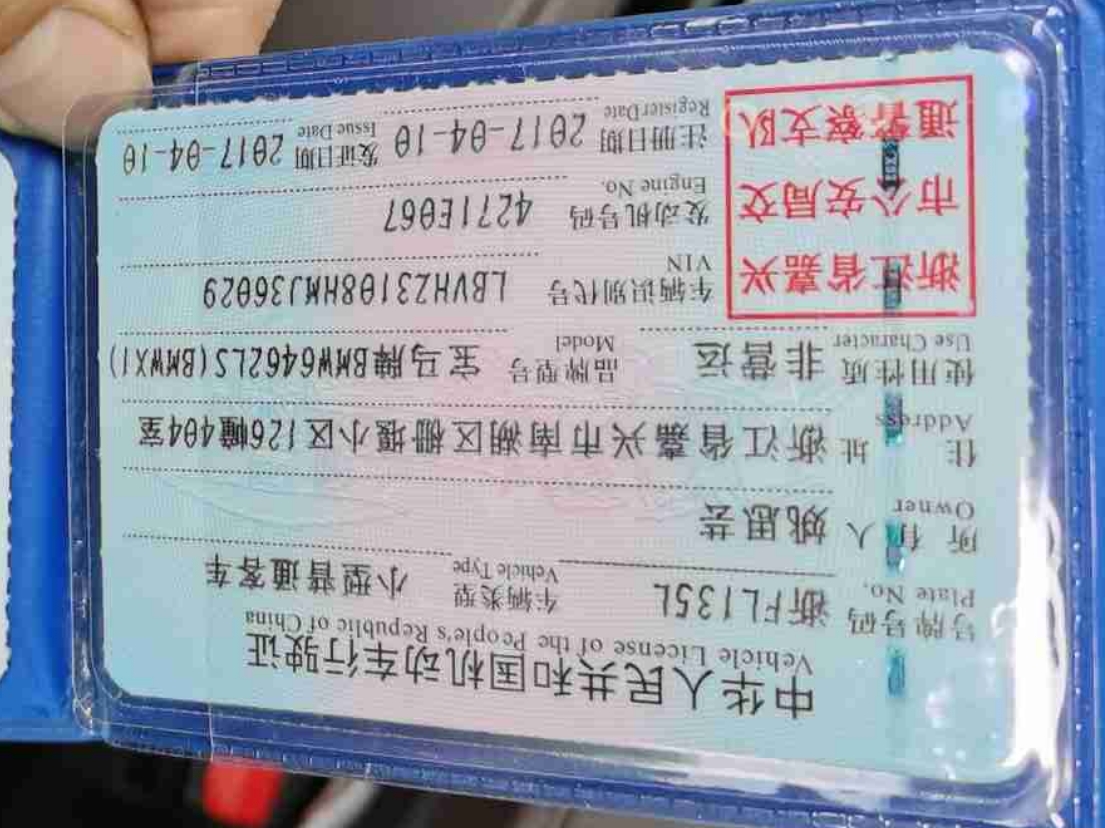 中华人民共和国机动车行驶证
Vehicle License of the People's Republic of China
号牌号码 浙FL135L 车辆类型 小型普通客车
Plate No. Vehicle Type
所有人 姚思芸
Owner
住址 浙江省嘉兴市南湖区栅堰小区126幢404室
Address
使用性质 非营运 品牌型号 宝马牌BMW6462LS(BMWX1)
Use Character Model
浙江省嘉兴
市公安局交
通警察支队
车辆识别代号 LBVHZ3108HMJ36029
VIN
发动机号码 4271E067
Engine No.
注册日期 2017-04-10 发证日期 2017-04-10
RegisterDate Issue Date